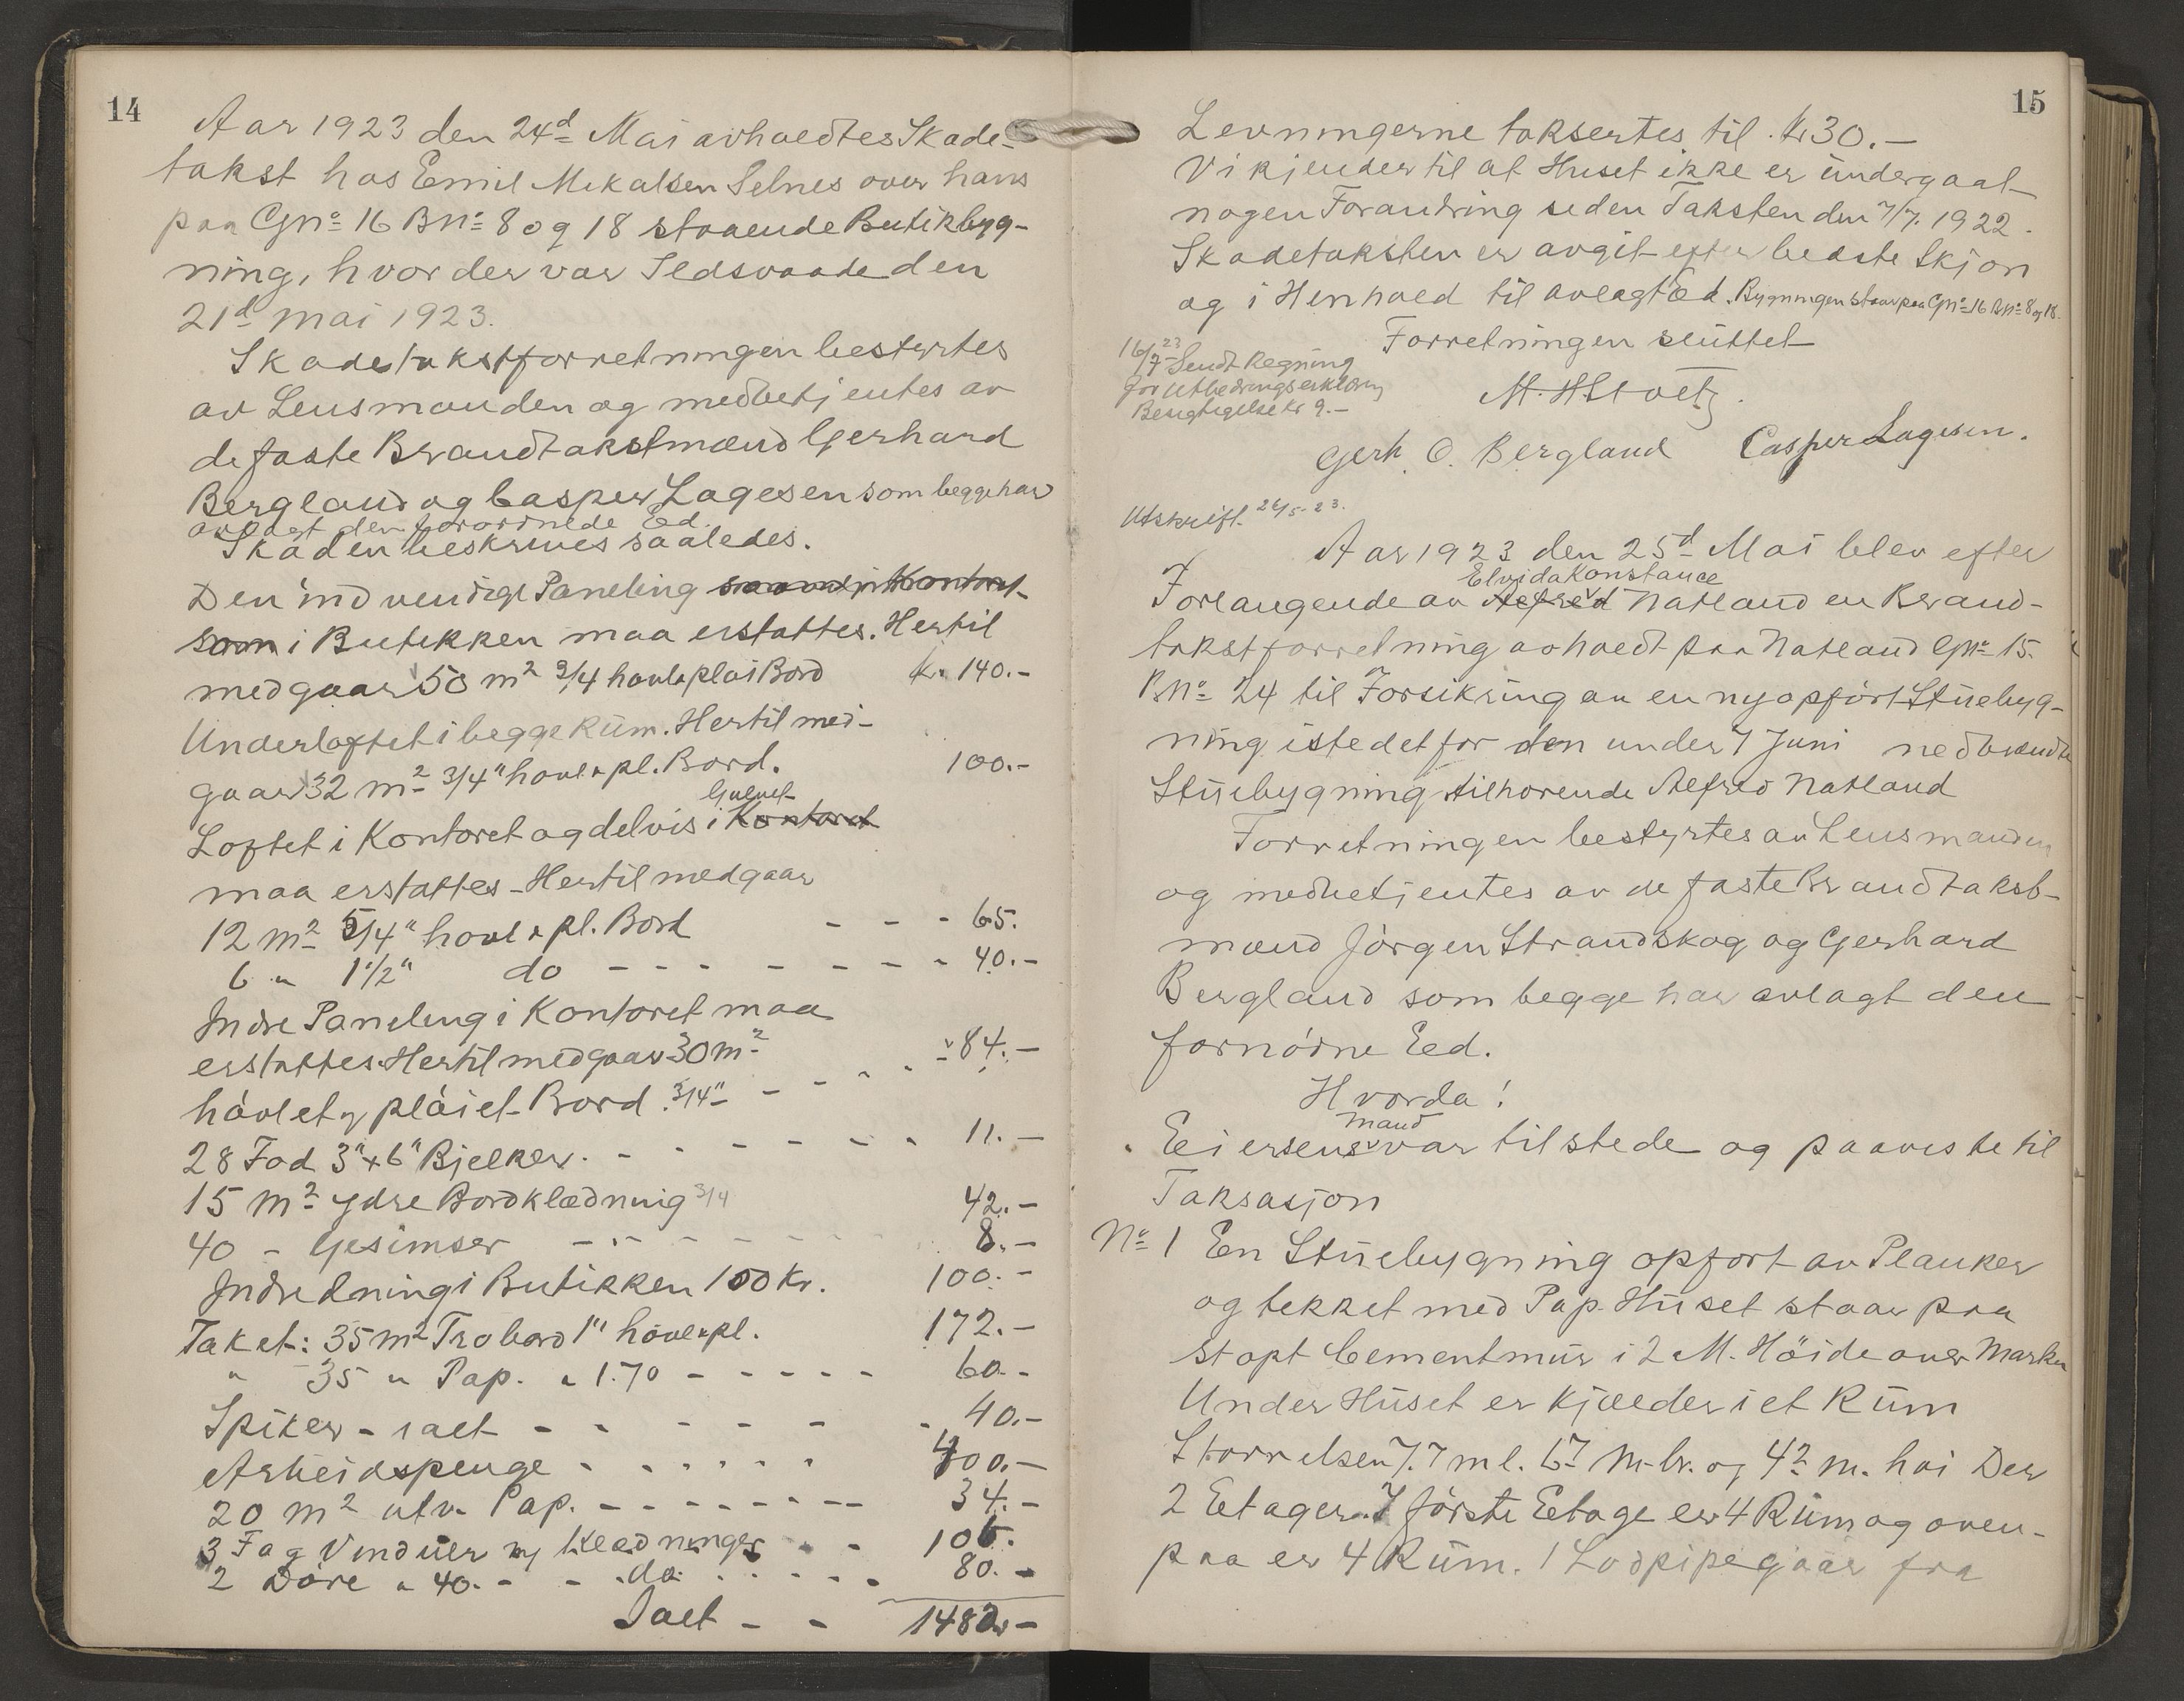 14
Aar 1923 den 24d Mai avholdtes Skade-
takst hos Emil Mikalsen Selnes over hans
paa Gno 16 Bno 8 og 18 staaende Butikbyg-
ning, hvor der var Ildsvaade den
21d mai 1923.
Skadetakstforretningen bestyrtes
av Lensmanden og medbetjentes av
de faste Brandtakstmænd Gerhard
Bergland og Casper Lagesen som begge har
avlagt den forordnede Ed.
Skaden beskrives saaledes.
Den indvendige Paneling
som i Butikken maa erstattes. Hertil
medgaar 50 m2 3/4 høvl & pløi Bord kr. 140.-
Underloftet i begge Rum. Hertil med-
gaar 32 m2 3/4" høvl & pl. Bord. 100.-
Gulvet
Loftet i Kontoret og delvis i Kontoret
maa erstattes - Hertil medgaar
12 m2 5/4" høvl & pl. Bord - - - 65.
6 " 1 1/2" do - - - - - - - 40.-
Indre Paneling i Kontoret maa
erstattes. Hertil medgaar 30 m2 - 84.-
høvlet & pløiet Bord 3/4" - - - -
28 Fod 3" x 6" Bjelker. - - - - - - 11.-
15 m2 ydre Bordklædning 3/4 42.-
40 - Gesimser - - - - - - 8.-
Indredning i Butikken 100 Kr. 100.-
Taket: 35 m2 Trobord 1" høvl & pl. 172.-
" 35 " Pap. a 1.70 - - - - - 60.-
Spiker - ialt - - - - - - 40.-
Arbeidspenge - - - - - - 400.-
20 m2 utv. Pap. - - - - - - - 34.-
3 Fag Vinduer m/ Klædninger - - 106.
2 Døre a 40.- - - do - - - - - 80.-
Ialt - - 1482.-
15
Levningerne taksertes til kr 30.-
Vi kjender til at Huset ikke er undergaat
nogen Forandring siden Taksten den 7/7. 1922.
Skadetaksten er avgit efter bedste Skjøn
og i Henhold til avlagt Ed. Bygningen staar paa Gno 16 Bno 8 og 18.
Forretningen sluttet
16/7 23 Sendt Regning
for Utbedringserklæring
Besigtigelse kr 9.-
M. H. Stoetz.
Gerh. O. Bergland Casper Lagesen.
Utskrift 26/5-23.
Aar 1923 den 25d Mai blev efter
Elvida Konstance
Forlangende av Alfred Natland en Brand-
takstforretning avholdt paa Natland Gno 15.
Bno 24 til Forsikring av en nyopført Stuebyg-
ning istedetfor den under 7 Juni nedbrændte
Stuebygning tilhørende Alfred Natland
Forretningen bestyrtes av Lensmanden
og medbetjentes av de faste Brandtakst-
mænd Jørgen Strandskog og Gerhard
Bergland som begge har avlagt den
fornødne Eed.
Hvorda!
mand
Eiersens var tilstede og paaviste til
Taksasjon
No 1 En Stuebygning opført av Planker
og tekket med Pap. Huset staar paa
støpt Cementmur i 2 M. Höide over Marken
Under Huset er Kjælder i et Rum
Størrelsen 7.7 m l. 6.7 m. br. og 4.2 m. høi Der
2 Etager. I første Eetage er 4 Rum og oven-
paa er 4 Rum. 1 Lodpipe gaar fra